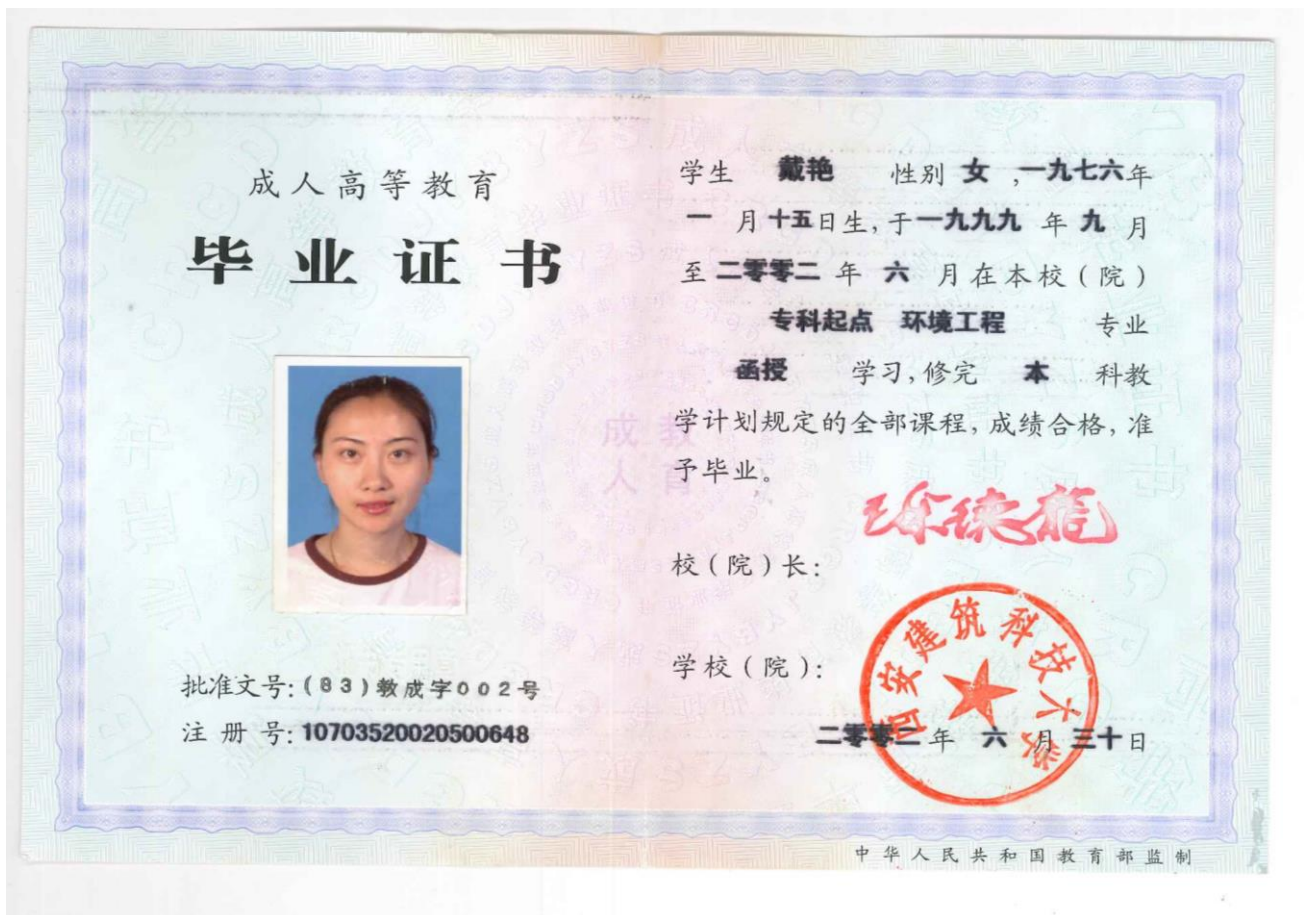 成人高等教育
毕业证书
批准文号:(83)教成字002号
注册号:10703520020500648
学生 戴艳 性别 女 ,一九七六年
一 月十五日生,于一九九九 年 九 月
至二零零二 年 六 月在本校(院)
专科起点 环境工程 专业
函授 学习,修完 本 科教
学计划规定的全部课程,成绩合格,准
予毕业。
校(院)长:
学校(院):
西安建筑科技大学
二零零二年 六 月 三十日
中华人民共和国教育部监制
成教
人育